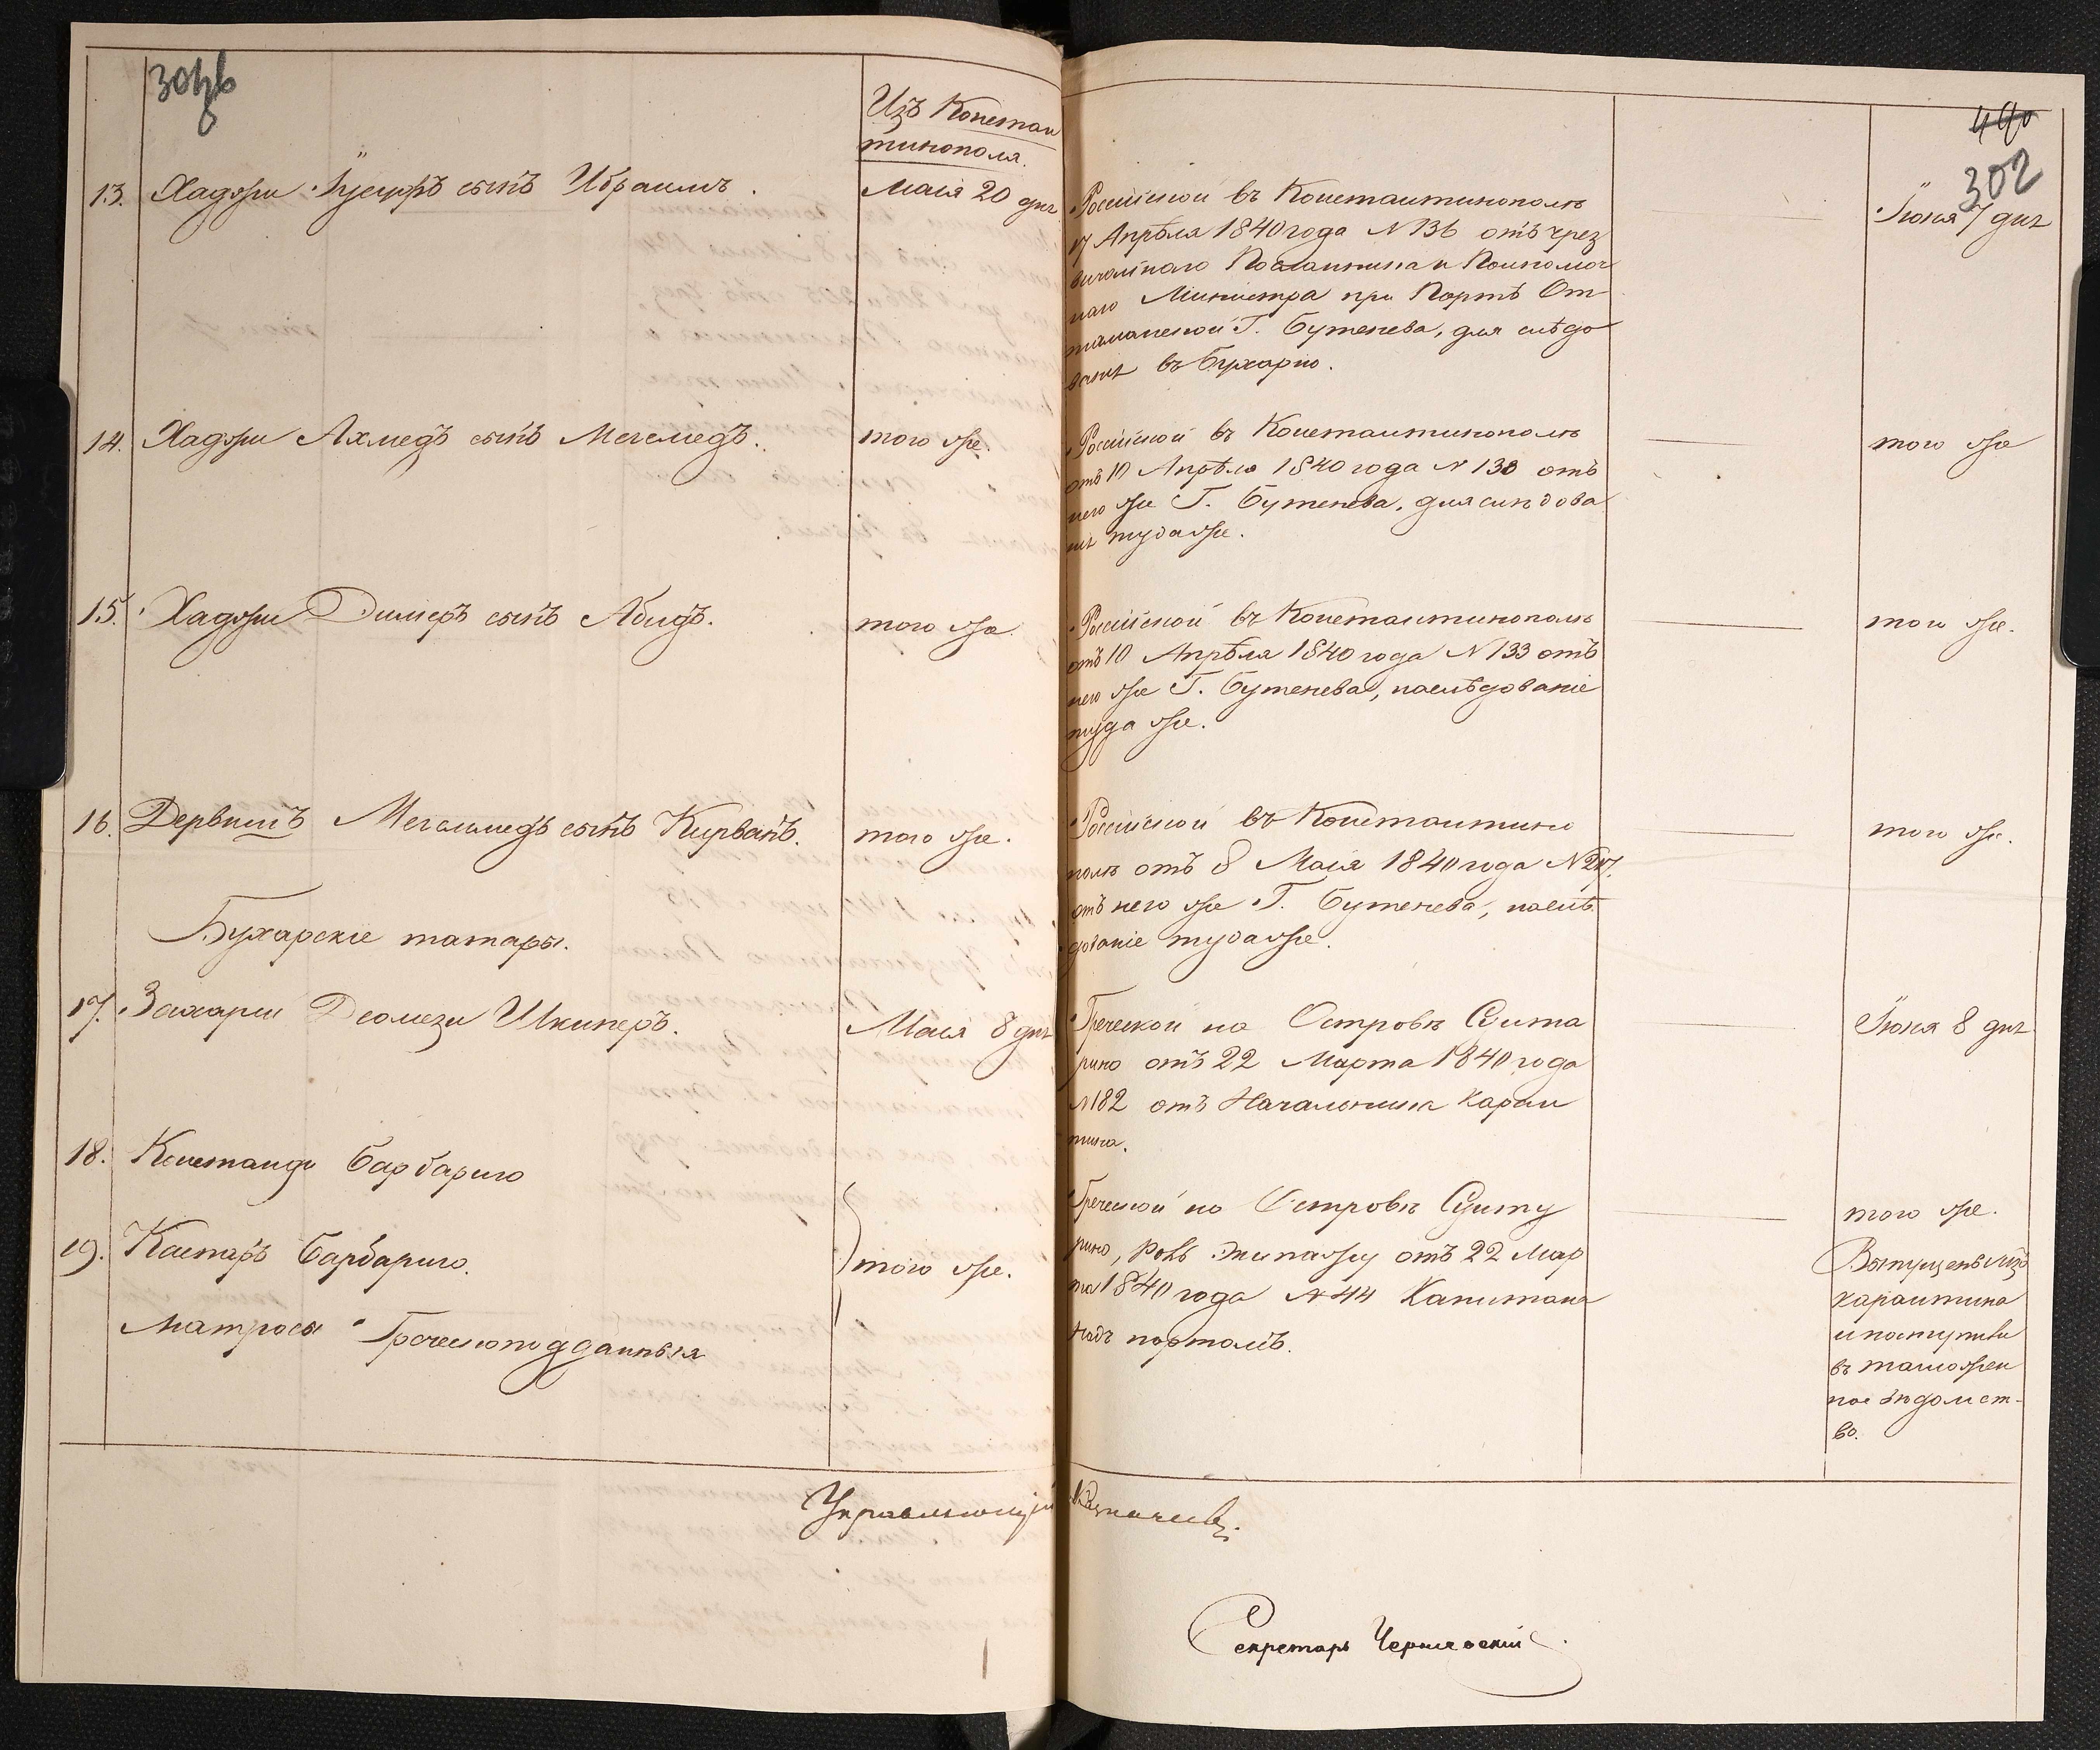 Изъ Констан
тинополя.
13. Хаджи Іусуфъ сынъ Ибраимъ.
Маія 20 дня
Россійской въ Константинополѣ
17 Апрѣля 1840 года № 136 отъ чрез
вычайнаго Посланника и Полномоч
наго Министра при Портѣ От
томанской Г. Бутенева, для слѣдо
ванія въ Бухарію.
Іюня 7 дня
302
14. Хаджи Ахмедъ сынъ Мегемедъ.
того же.
Россійской въ Константинополѣ
отъ 10 Апрѣля 1840 года № 130 отъ
него же Г. Бутенева, для слѣдова
нія туда же.
того же
15. Хаджи сынъ Абидъ.
того же.
Россійской въ Константинополѣ
отъ 10 Апрѣля 1840 года № 133 отъ
него же Г. Бутенева, на слѣдованіе
туда же.
того же.
16. Дервишъ Мегеммедъ сынъ Кирванъ.
того же.
Россійской въ Константино
полѣ отъ 8 Маія 1840 года №
отъ него же Г. Бутенева, на слѣ
дованіе туда же.
того же.
Бухарскіе татары.
17. Захарій Шкиперъ.
Маія 8 дня
Греческой на Островѣ
рино отъ 22 Марта 1840 года
№ 182 отъ Начальника Каран
тина.
Іюня 8 дня
18. Констанди Барбариго
19. Каспаръ Барбариго.
Матросы Греческоподданныя
того же.
Греческой на Островѣ
рино, роль экипажу отъ 22 Мар
та 1840 года № 44 Капитана
надъ портомъ.
того же.
Выпущены изъ
карантина
и поступили
въ таможен
ное вѣдомст-
во.
Управляющій
Секретарь Чернявскій